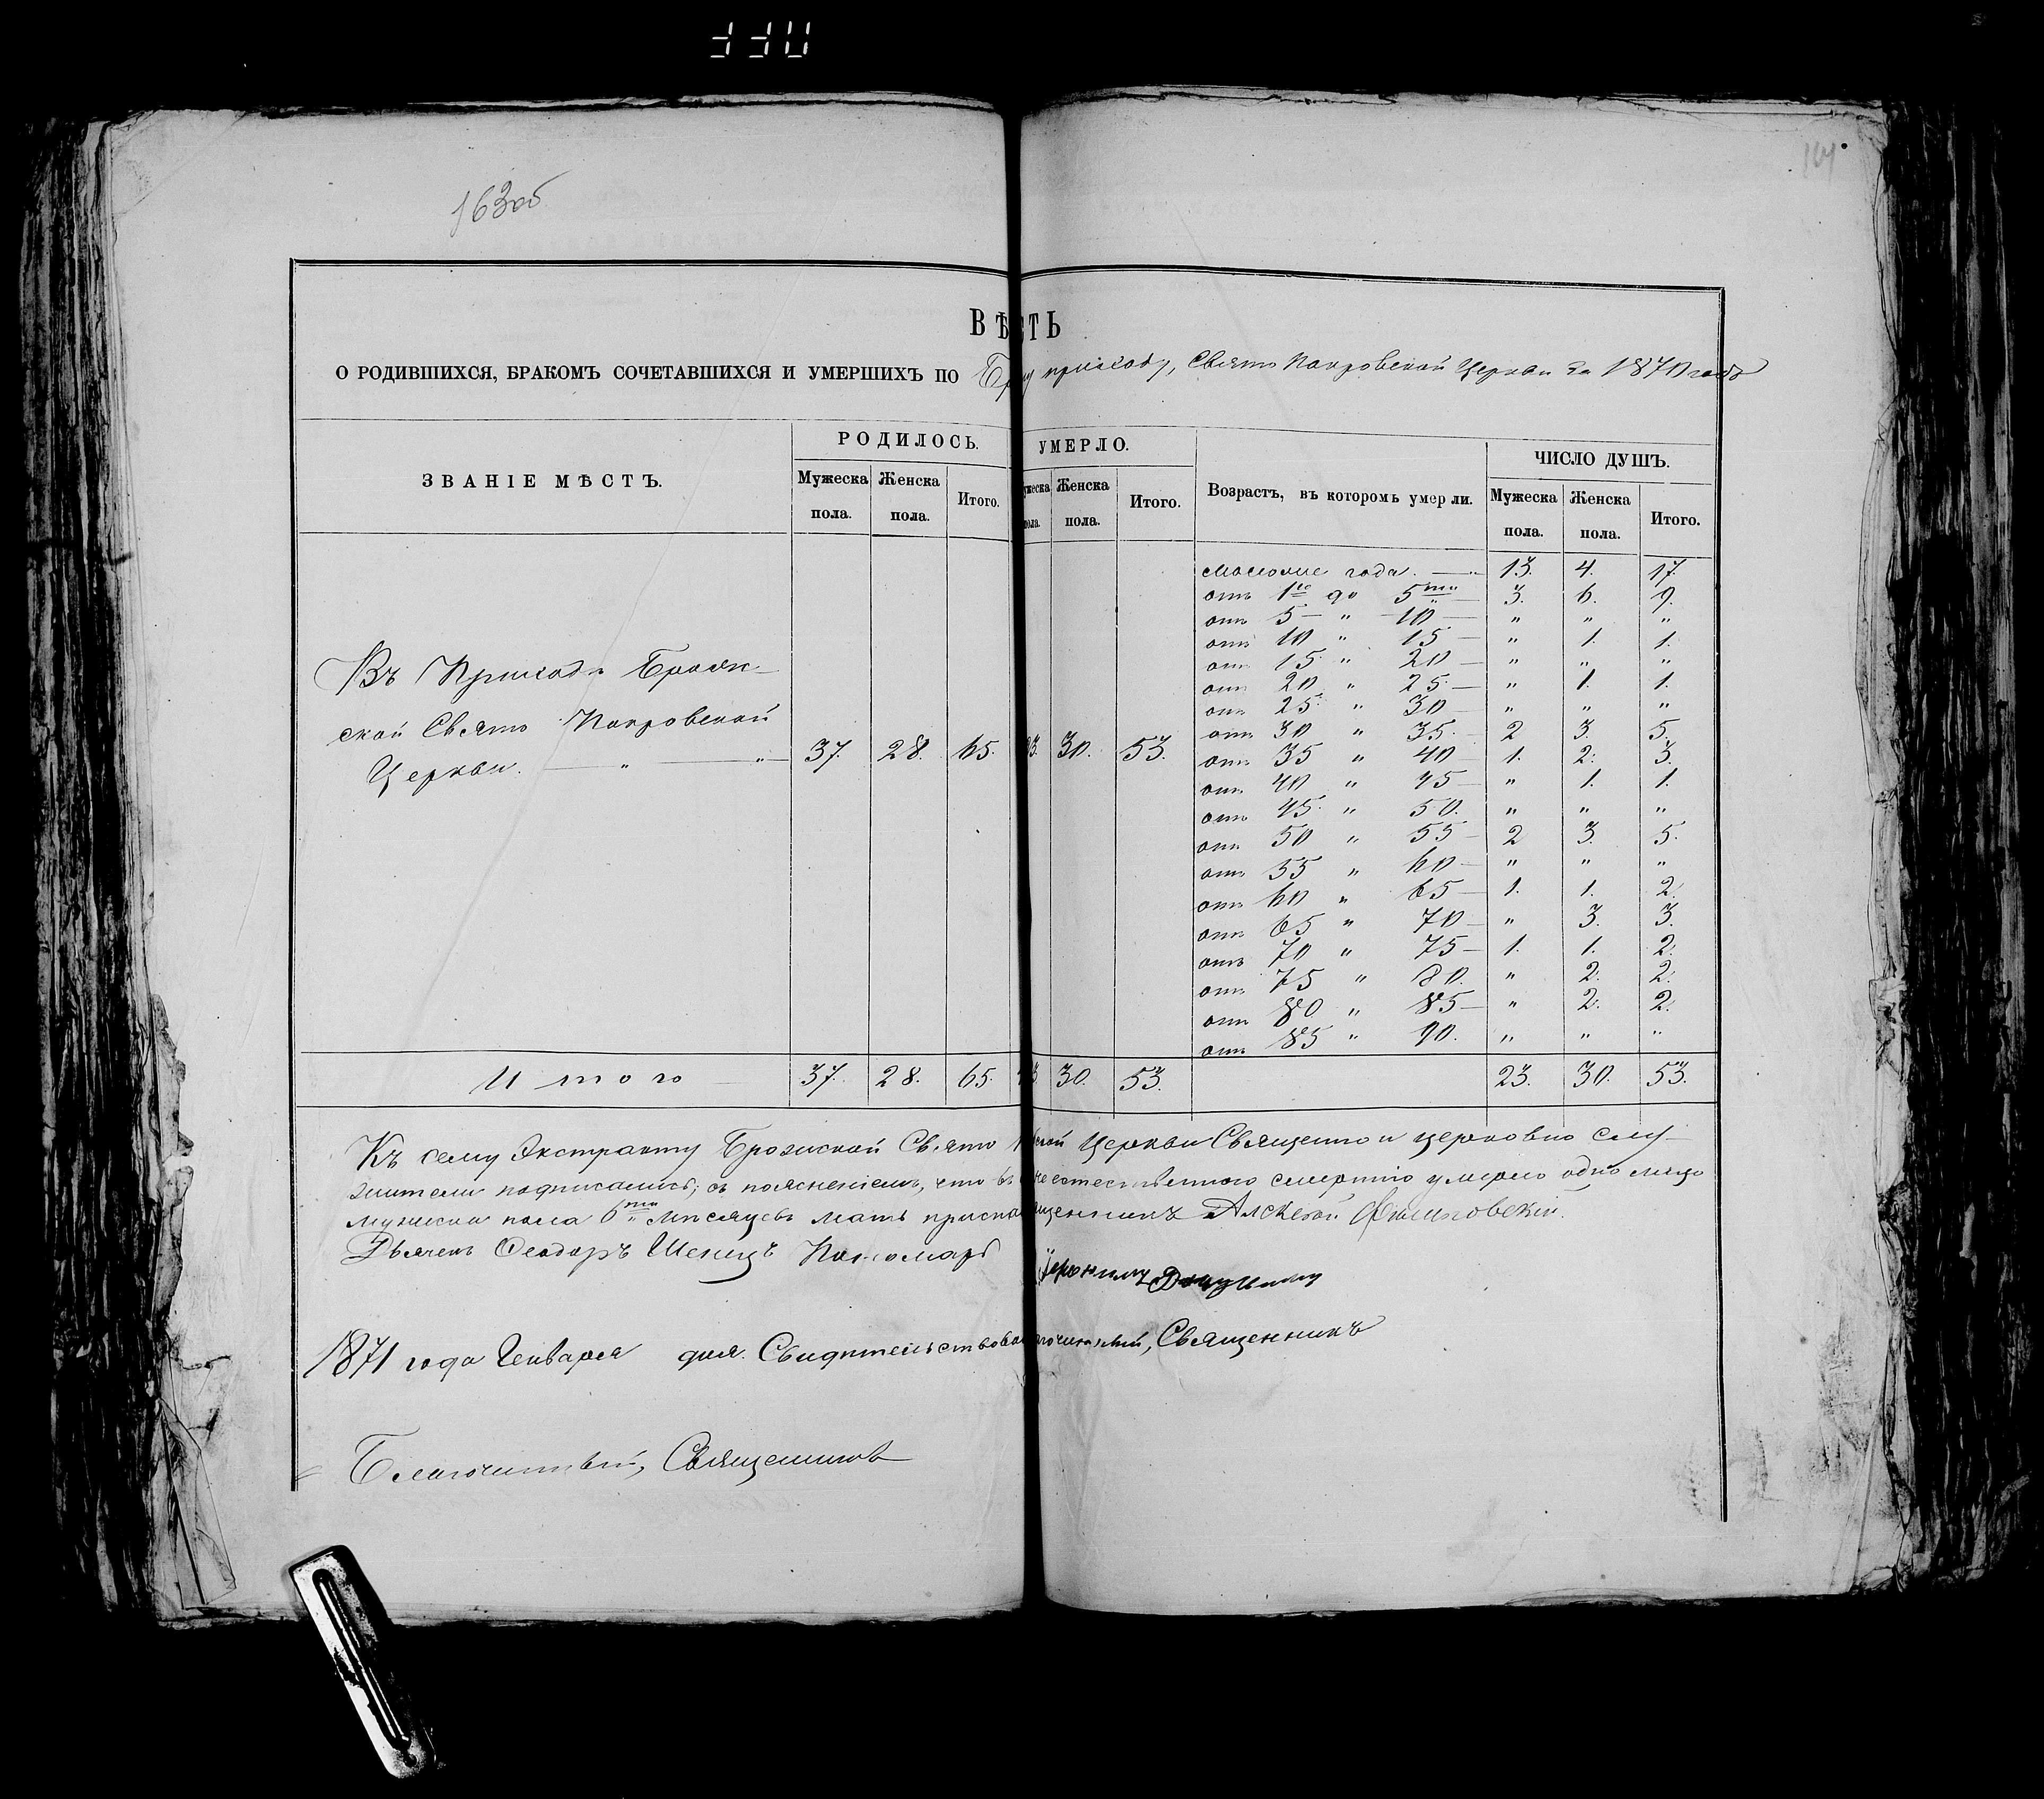 163об
164
ВѢСТЬ
О РОДИВШИХСЯ, БРАКОМЪ СОЧЕТАВШИХСЯ И УМЕРШИХЪ ПО приходу, Свято Покровской Церкви за 1870 годъ
ЗВАНІЕ МѢСТЪ.
РОДИЛОСЬ.
Мужеска пола.
Женска пола.
Итого.
УМЕРЛО.
Женска пола.
Итого.
Возрастъ, въ которомъ умерли.
ЧИСЛО ДУШЪ.
Мужеска пола.
Женска пола.
Итого.
Въ Приходѣ
ской Свято Покровской
Церкви. — „ — „ — 37. 28. 65. 23. 30. 53.
года. — 13. 4. 17.
отъ 1го до 5ти — 3. 6. 9.
отъ 5 — „ 10 — „ „ „
отъ 10 „ 15 — „ 1. 1.
отъ 15 „ 20 — „ „ „
отъ 20 „ 25. — „ 1. 1.
отъ 25. „ 30 — „ „ „
отъ 30 „ 35. — 2 3. 5.
отъ 35 „ 40 — 1. 2. 3.
отъ 40 „ 45 — „ 1. 1.
отъ 45. „ 50. „ „ „
отъ 50 „ 55 — 2 3. 5.
отъ 55 „ 60 — „ „ „
отъ 60 „ 65 — 1. 1. 2.
отъ 65 „ 70 — „ 3. 3.
отъ 70 „ 75 — 1. 1. 2.
отъ 75 „ 80. „ 2. 2.
отъ 80 „ 85 — „ 2. 2.
отъ 85 „ 90. „ „ „
Итого 37. 28. 65. 23. 30. 53. 23. 30. 53.
Къ сему Экстракту Брожской Свято ской Церкви Священно и церковно слу-
жители подписались; съ поясненіемъ, что неестественною смертію умерло одно лицо
мужеска пола 6ти мѣсяцевъ мать Алексѣй
Дьячекъ Ѳеодоръ Шениц Пономарь
1871 года Генваря дня. Священникъ
Благочинный, Священникъ